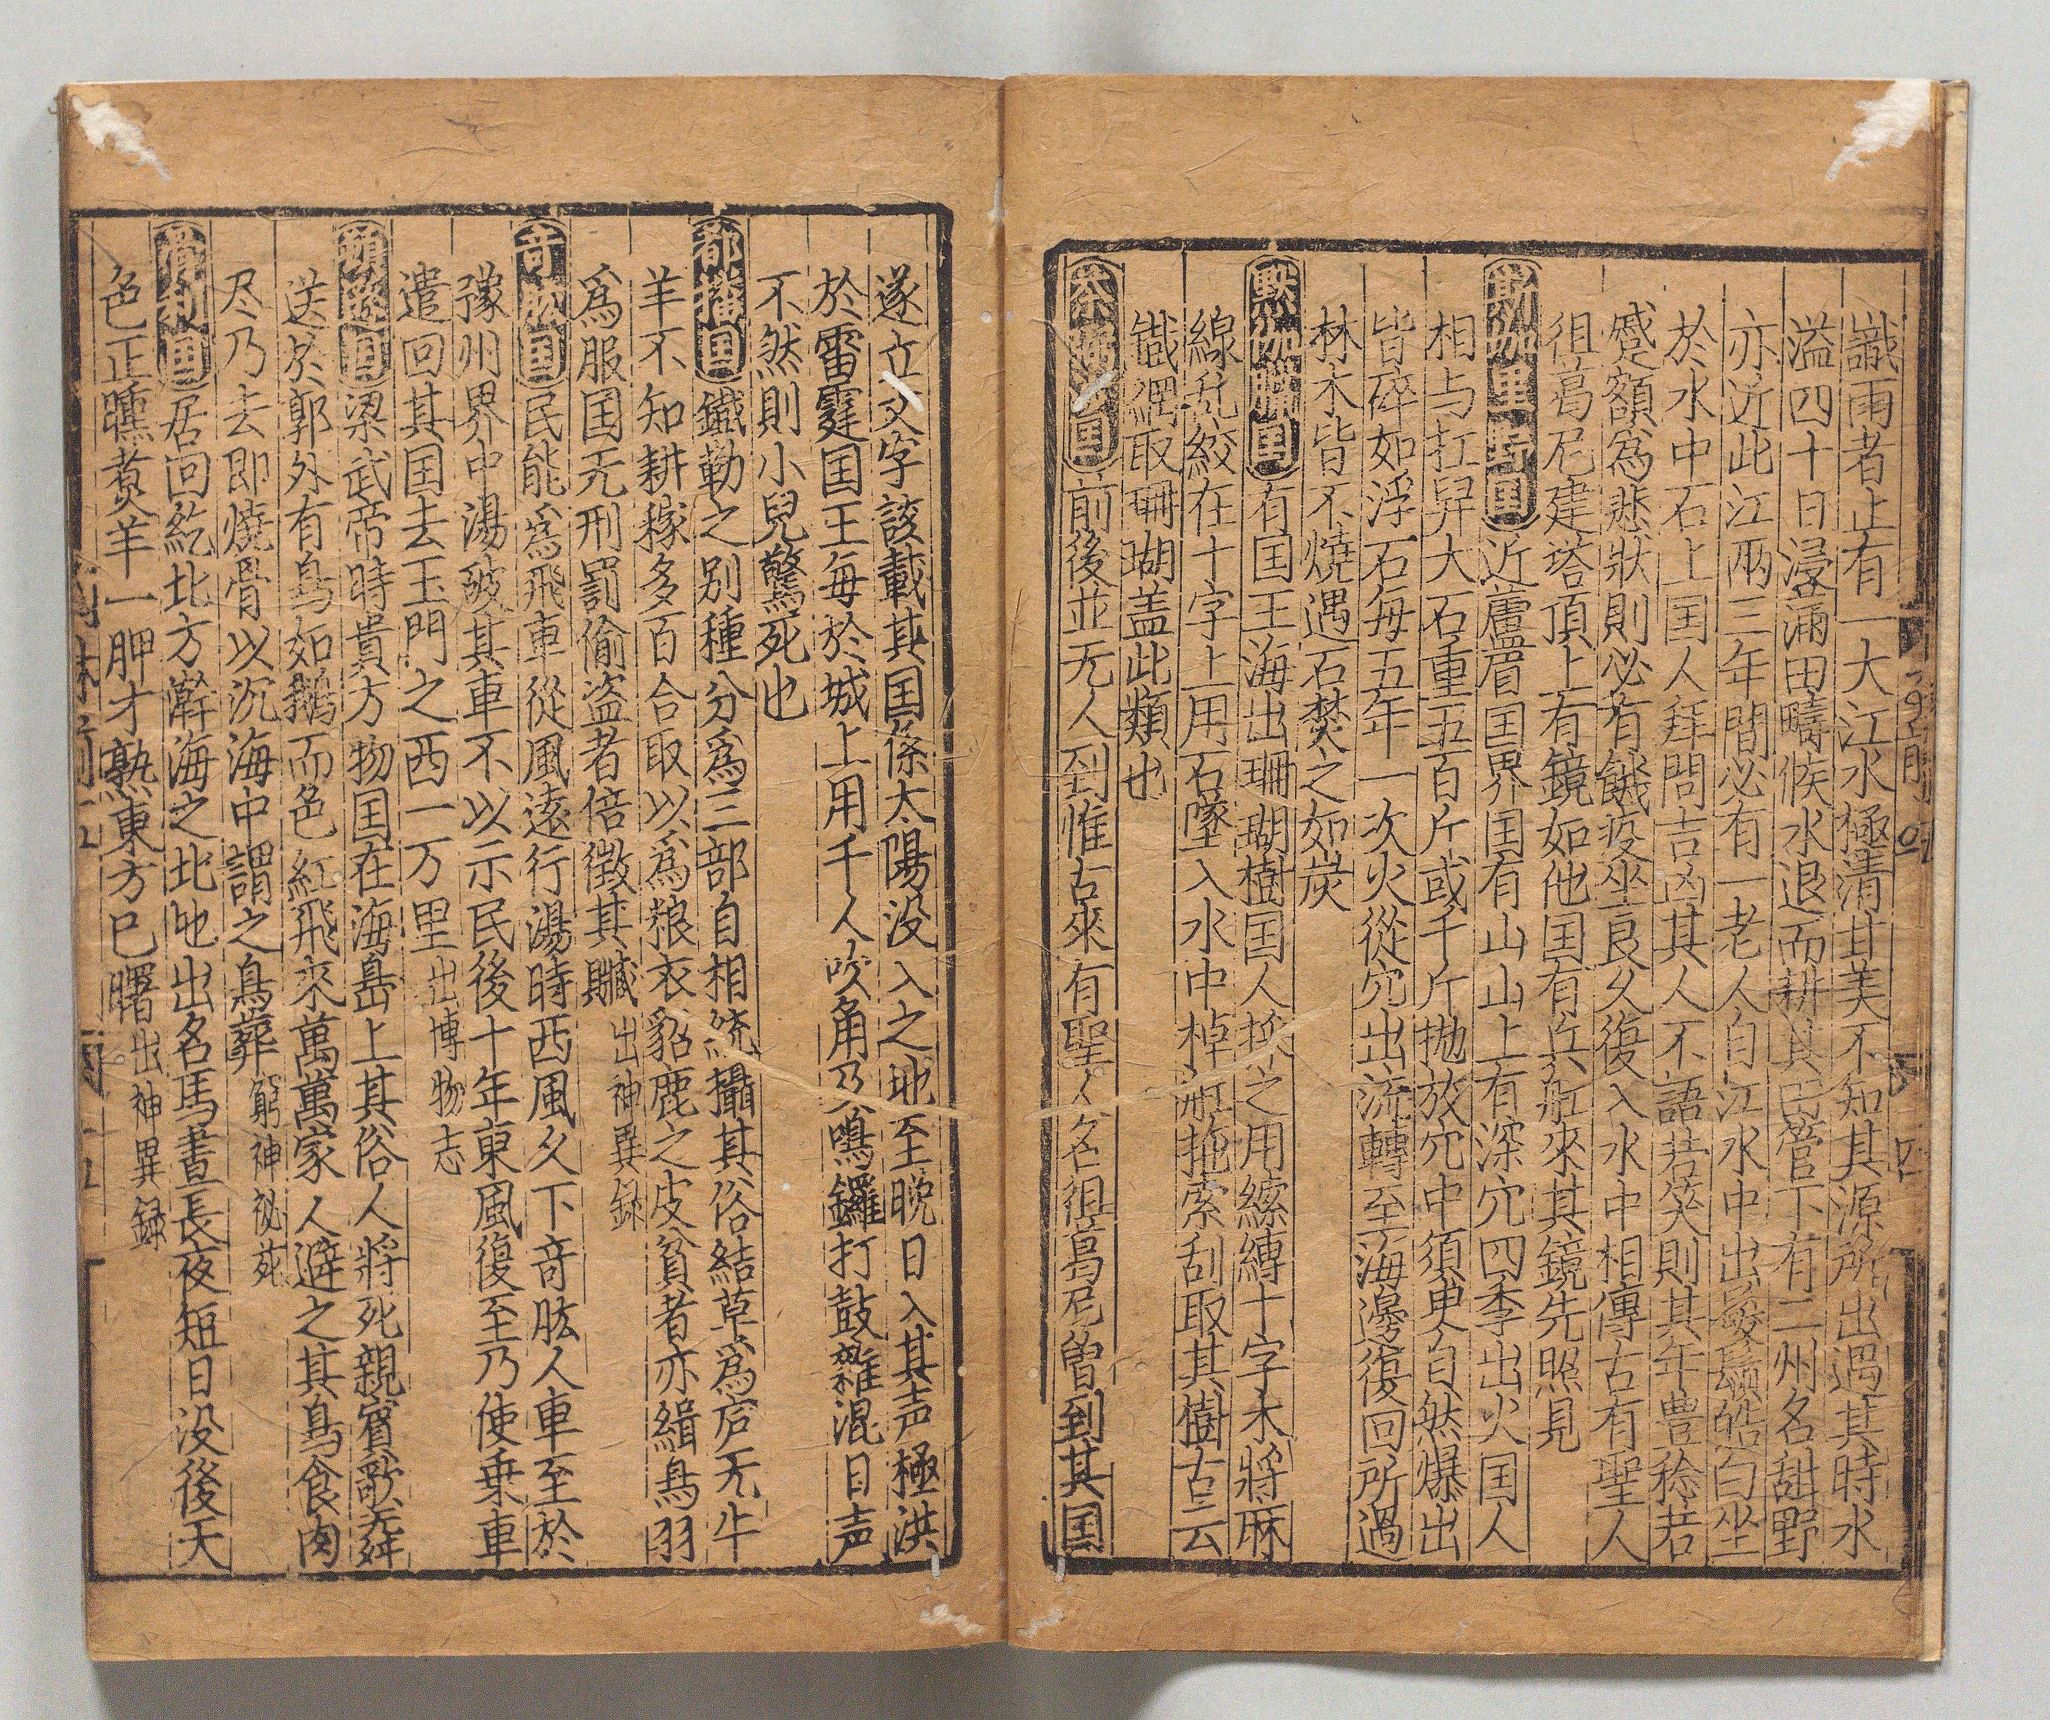 識雨者止有一大江水極清甘美不知其源所出遇其時水
溢四十日浸滿田疇候水退而耕其田管下有二州名甜野
亦近此江兩三年間必有一老人自江水中出鬚鬢皓白坐
於水中石上国人拜問吉凶其人不語若笑則其年豊稔若
蹙額為悲狀則必有饑疫坐良久復入水中相傳古有聖人
徂葛尼建塔頂上有鏡如他国有兵舡來其鏡先照見
斯伽里野国近蘆眉国界国有山山上有深穴四季出火国人
相与扛舁大石重五百斤或千斤抛放穴中須臾自然爆出
皆碎如浮石每五年一次火從穴出流轉至海邊復回所過
林木皆不燒遇石焚之如炭
默伽臘国有国王海出珊瑚樹国人採之用縧縳十字木將麻
線乱絞在十字上用石墜入水中棹舡拖索刮取其樹古云
鐵網取珊瑚盖此類也
茶弼沙国前後並无人到惟古來有聖人名徂葛尼曽到其国
遂立文字該載其国係太陽没入之地至晚日入其声極洪
於雷霆国王每於城上用千人吹角乃鳴鑼打鼓雜混日声
不然則小兒驚死也
都播国鐵勒之别種分爲三部自相統攝其俗結草爲庐无牛
羊不知耕稼多百合取以爲粮衣貂鹿之皮貧者亦緝鳥羽
爲服国无刑罰偷盗者倍徵其贓 出神異録
竒肱国民能爲飛車從風遠行湯時西風久下竒肱人車至於
豫州界中湯破其車不以示民後十年東風復至乃使乗車
遣回其国去玉門之西一万里 出博物志
頓遜国梁武帝時貢方物国在海島上其俗人將死親賓歌舞
送於郭外有鳥如鵝而色紅飛來萬萬家人避之其鳥食肉
尽乃去即燒骨以沉海中謂之鳥葬 窮神祕苑
骨利国居回紇北方瀚海之北地出名馬晝長夜短日没後天
色正曛煑羊一胛才熟東方巳曙 出神異録